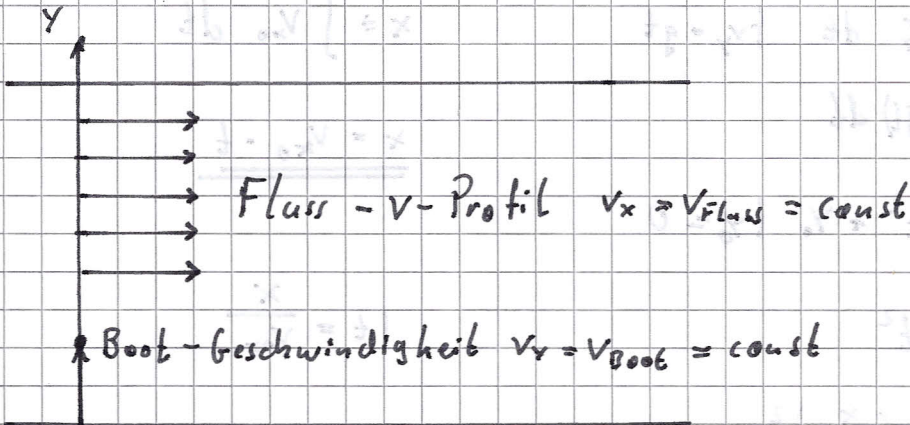 Y
Fluss - v - Profil vx = vFluss = const
Boot - Geschwindigkeit vY = vBoot = const